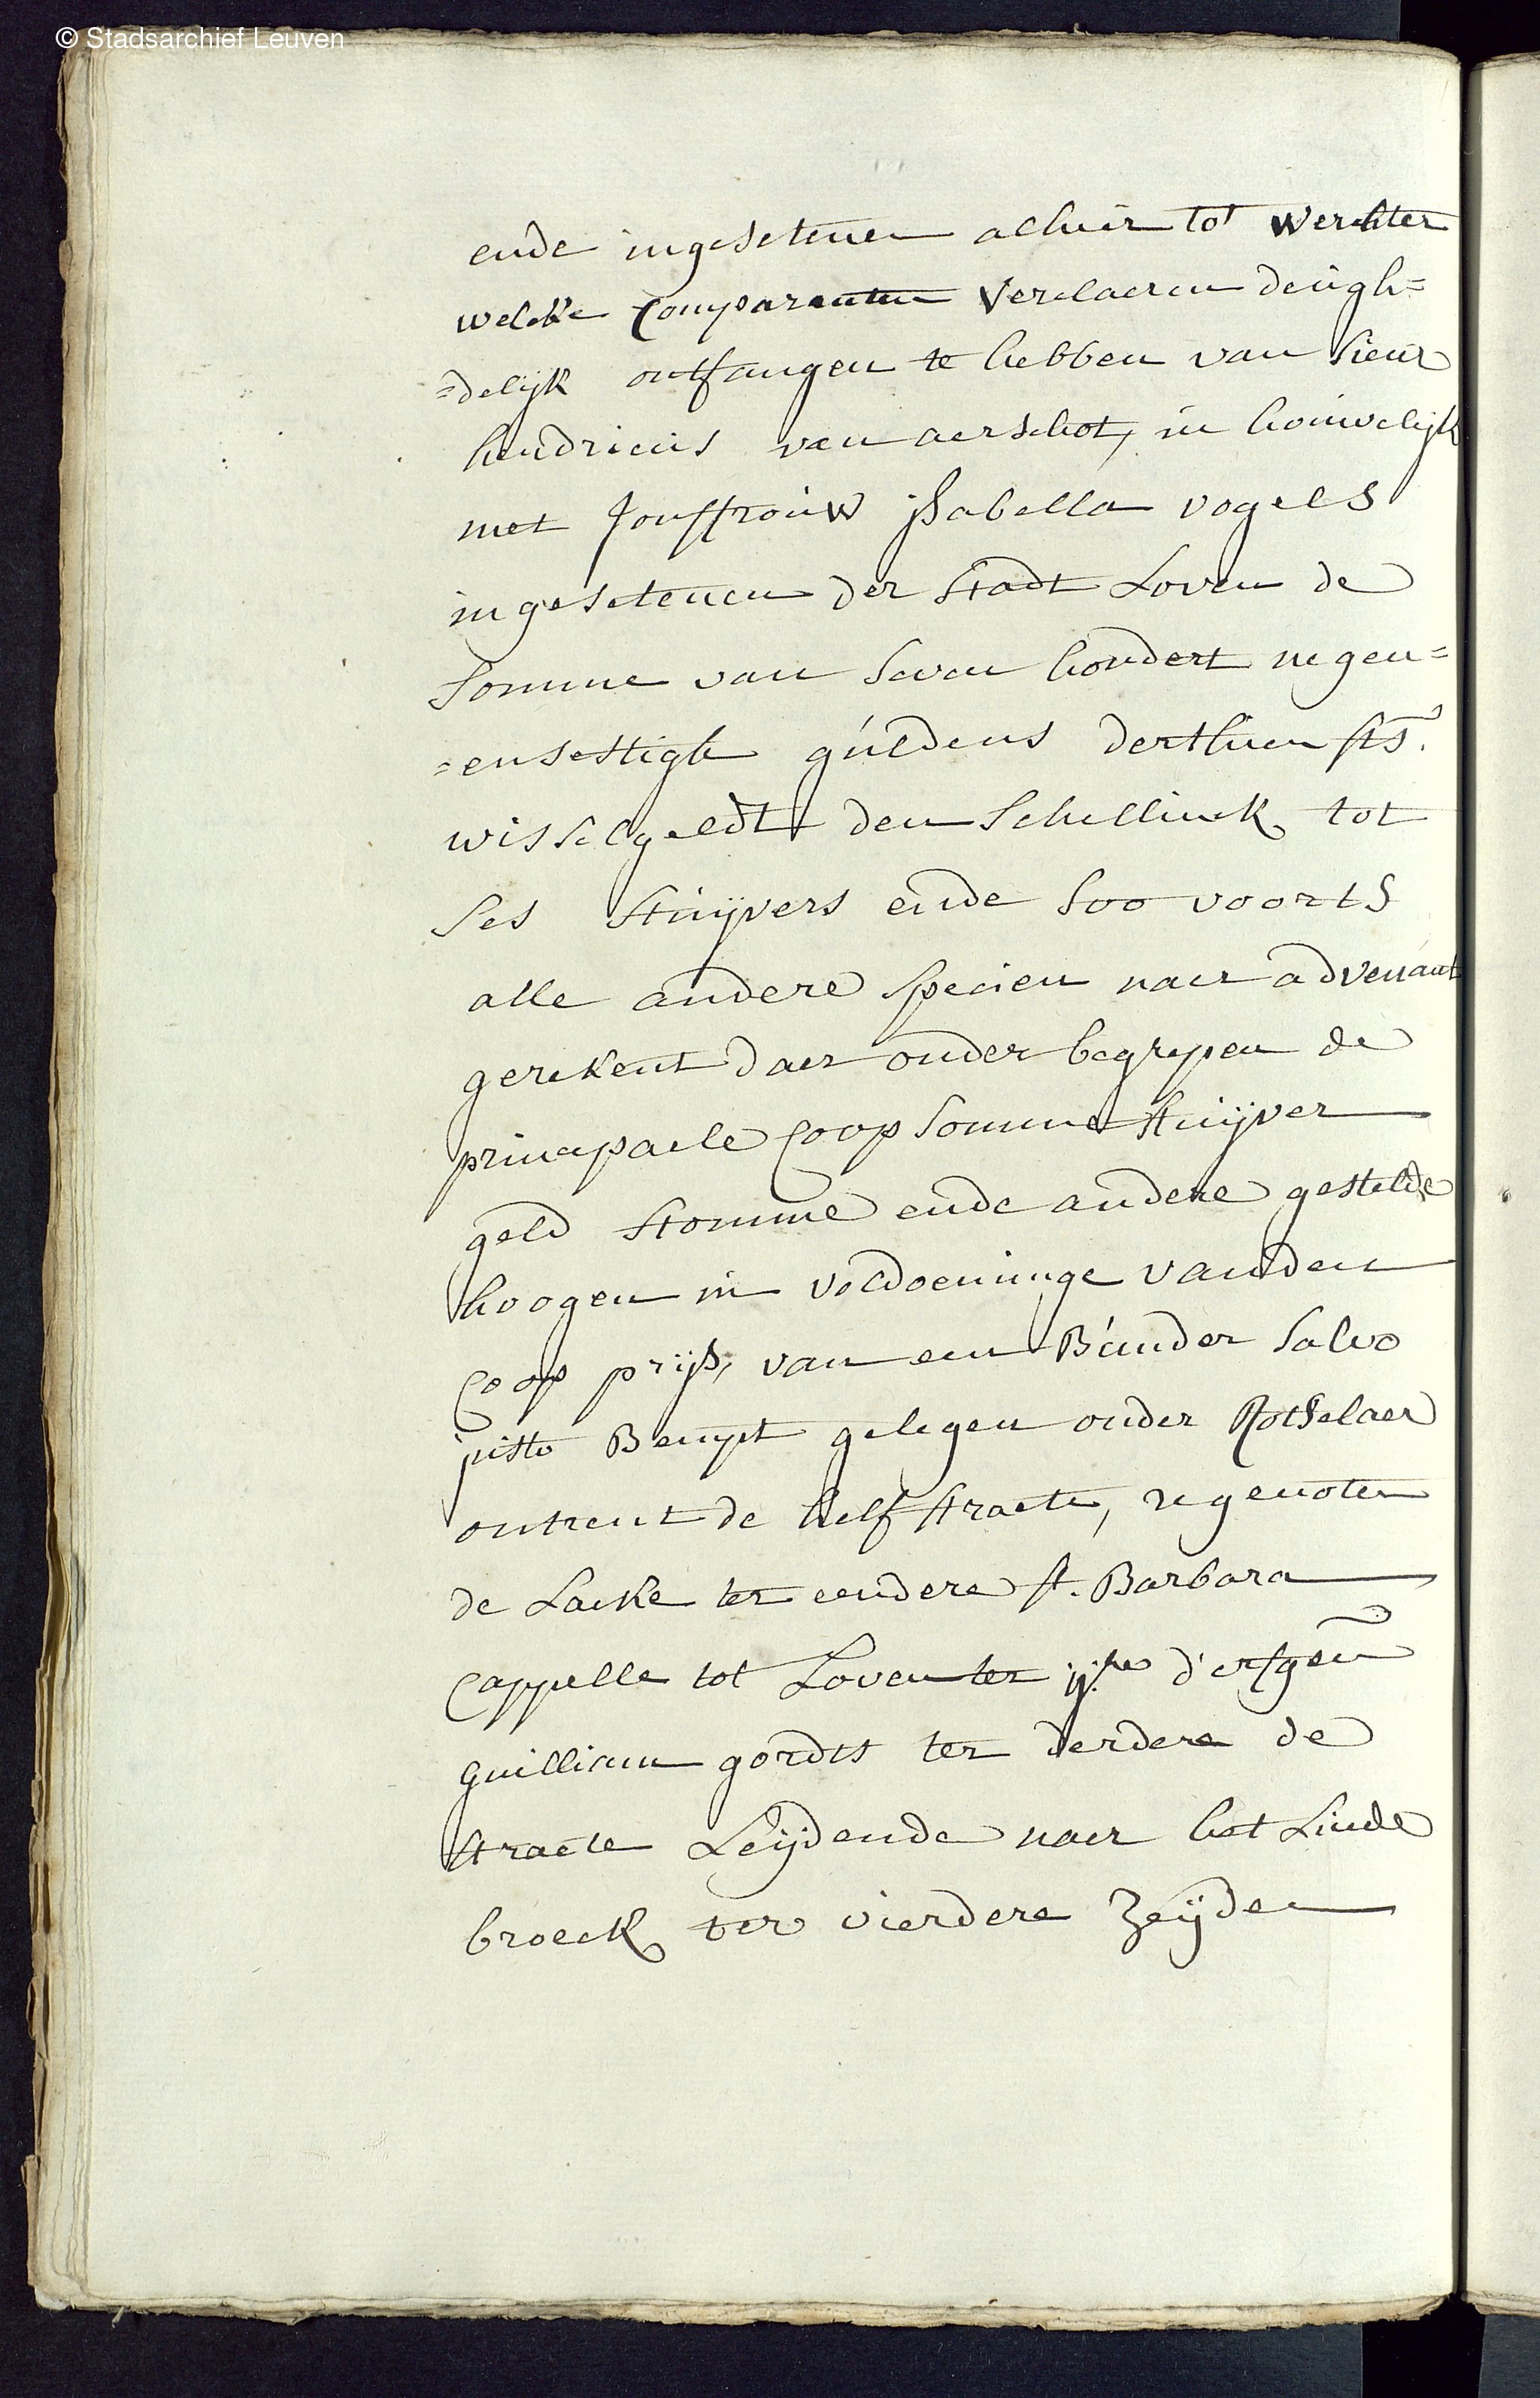 © Stadsarchief Leuven
ende ingesetenen alhier tot werchter
welcke Comparanten verclaeren deugh=
=delijk ontfangen te hebben van sieur
hendricus van aerschot, in houwelijk
met Jouffrouw jsabella vogels
ingesetenen der stadt Loven de
somme van seven hondert negen=
=ensestigh guldens derthien sts.
wisselgeldt den schellinck tot
ses stuijvers ende soo voorts
alle andere specien naer advenant
gerekent daer onder begrepen de
principaele coop somme stuijver
geld stomme ende andere gestelde
hoogen in voldoeninge vanden
coop prijs, van een Bunder salvo
justo Bempt gelegen onder Rotselaer
ontrent de helf straete, regenoten
de Laeke ter eendere st. Barbara
Cappelle tot Loven ter ij.re d'erfgen
guilliam gordts ter derdere de
straete Leijdende naer het Linde
broeck ter vierdere zeijden